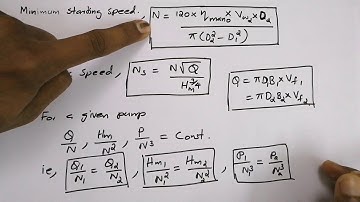 Minimum starting speed, N = 120 × η_mano × V_w₂ × D₂ / π(D₂² − D₁²)
speed, N_s = N√Q / H_m^3/4
Q = πD₁B₁ × V_f₁
= πD₂B₂ × V_f₂
For a given pump
Q/N, Hm/N², P/N³ = Const.
ie, Q₁/N₁ = Q₂/N₂, Hm₁/N₁² = Hm₂/N₂², P₁/N₁³ = P₂/N₂³